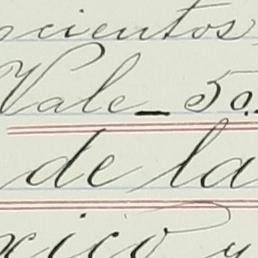 cientos
Vale_50.
de la
xico y